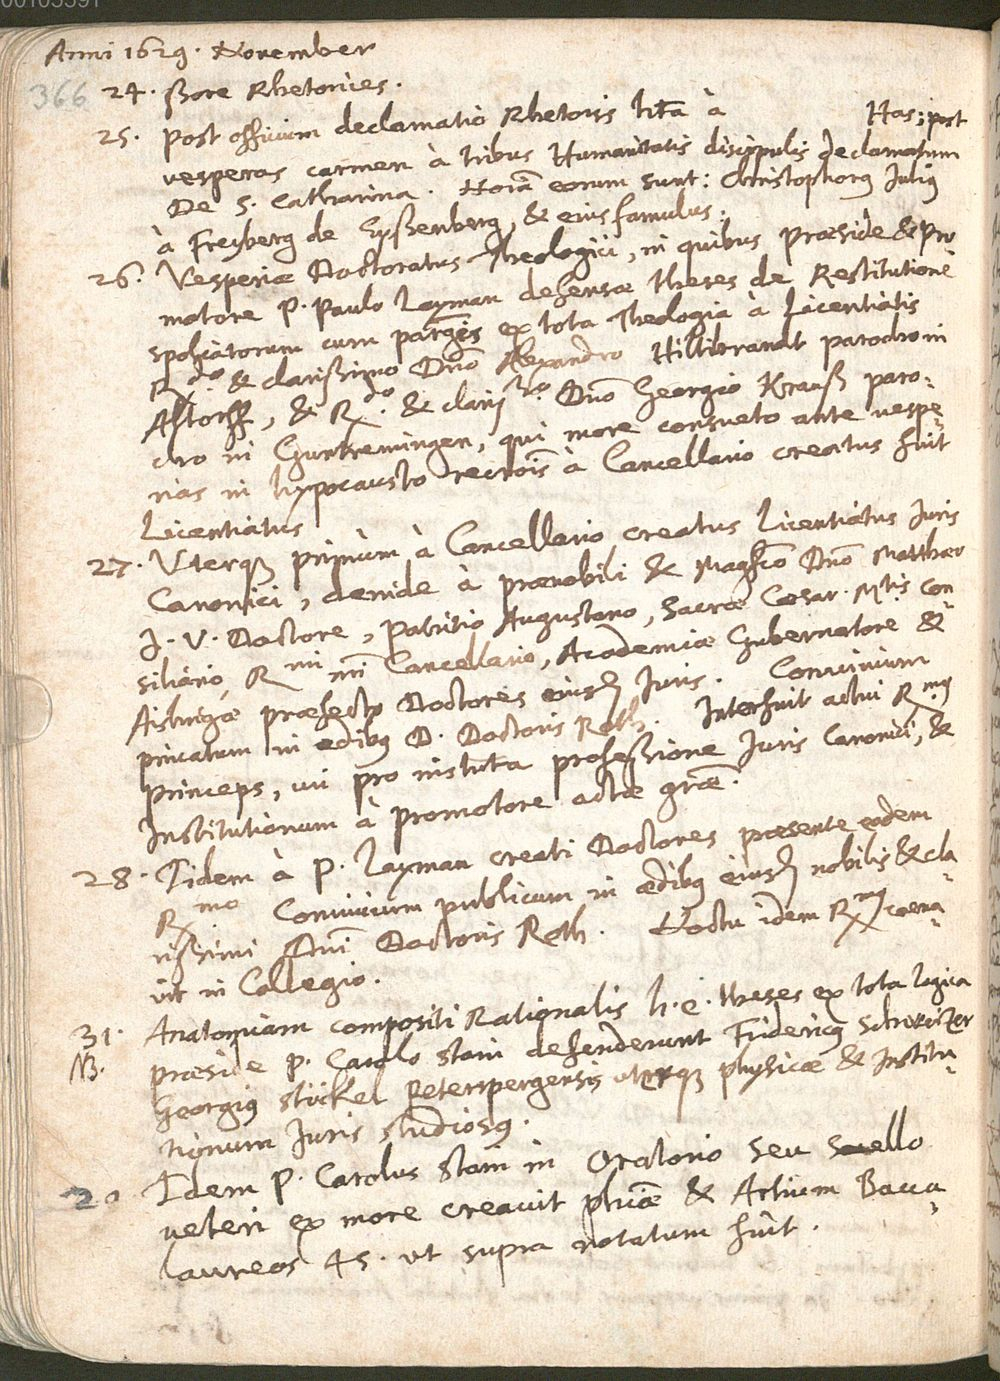 00103391
Anni 1629. November
366
24. Bore Rhetorices.
25. Post officium declamatio Rhetoris hita à Has; post
vesperas carmen à tribus Humanitatis discipulis declamatum
De S. Catharina. Horã eorum sunt: Christophorg Julig
à Freyberg de Eyssenberg, & eius famulus.
26. Vesperiæ Doctoratus Theologici, in quibus præside & Pro
motore P. Paulo Layman defensæ theses de Restitutione
spoliatorum cum parergis ex tota Theologia à Licentiatis
Rdo & clarissimo Dno Alexandro Hiltibrandt parocho in
Altorff, & Rdo. & clariss mo. Dno Georgio Krauß paro-
cho in Guntremingen, qui more consueto ante vespe-
rias in hypocausto rectoris à Cancellario creatus fuit
Licentiatus
27. Uterq primùm à Cancellario creatus Licentiatus Juris
Canonici, deinde à prænobili & Magfco Dno Matthæo
J. V. Doctore, Patritio Augustano, Sacræ Cæsar. Mtis con-
siliario, R mi mi Cancellario, Academiæ Gubernatore &
Aislingæ præfecto Doctores eiusd Juris. Convivium
privatum in ædibq D. Doctoris Roth. Interfuit actui Rmq
princeps, cui pro instituta professione Juris Canonici, &
Institutionum à promotore actæ græ.
28. Iidem à P. Layman creati Doctores præsente eodem
R mo Convivium publicum in ædibq eiusd nobilis & cla-
rissimi Dni Doctoris Roth. Noctu idem Rmq cæna-
vit in Collegio.
31. Anatomiam compositi Rationalis h.e. theses ex tota Logica
NB. præside P. Carolo Stain defenderunt Fridericq Schweitzer
Georgiq Stückel Peterspergensis uterq physicæ & Institu-
tionum Juris studiosq.
20. Idem P. Carolus Stain in Oratorio seu Sacello
veteri ex more creavit phiæ & Artium Bacca-
laureos 45. ut supra notatum fuit.